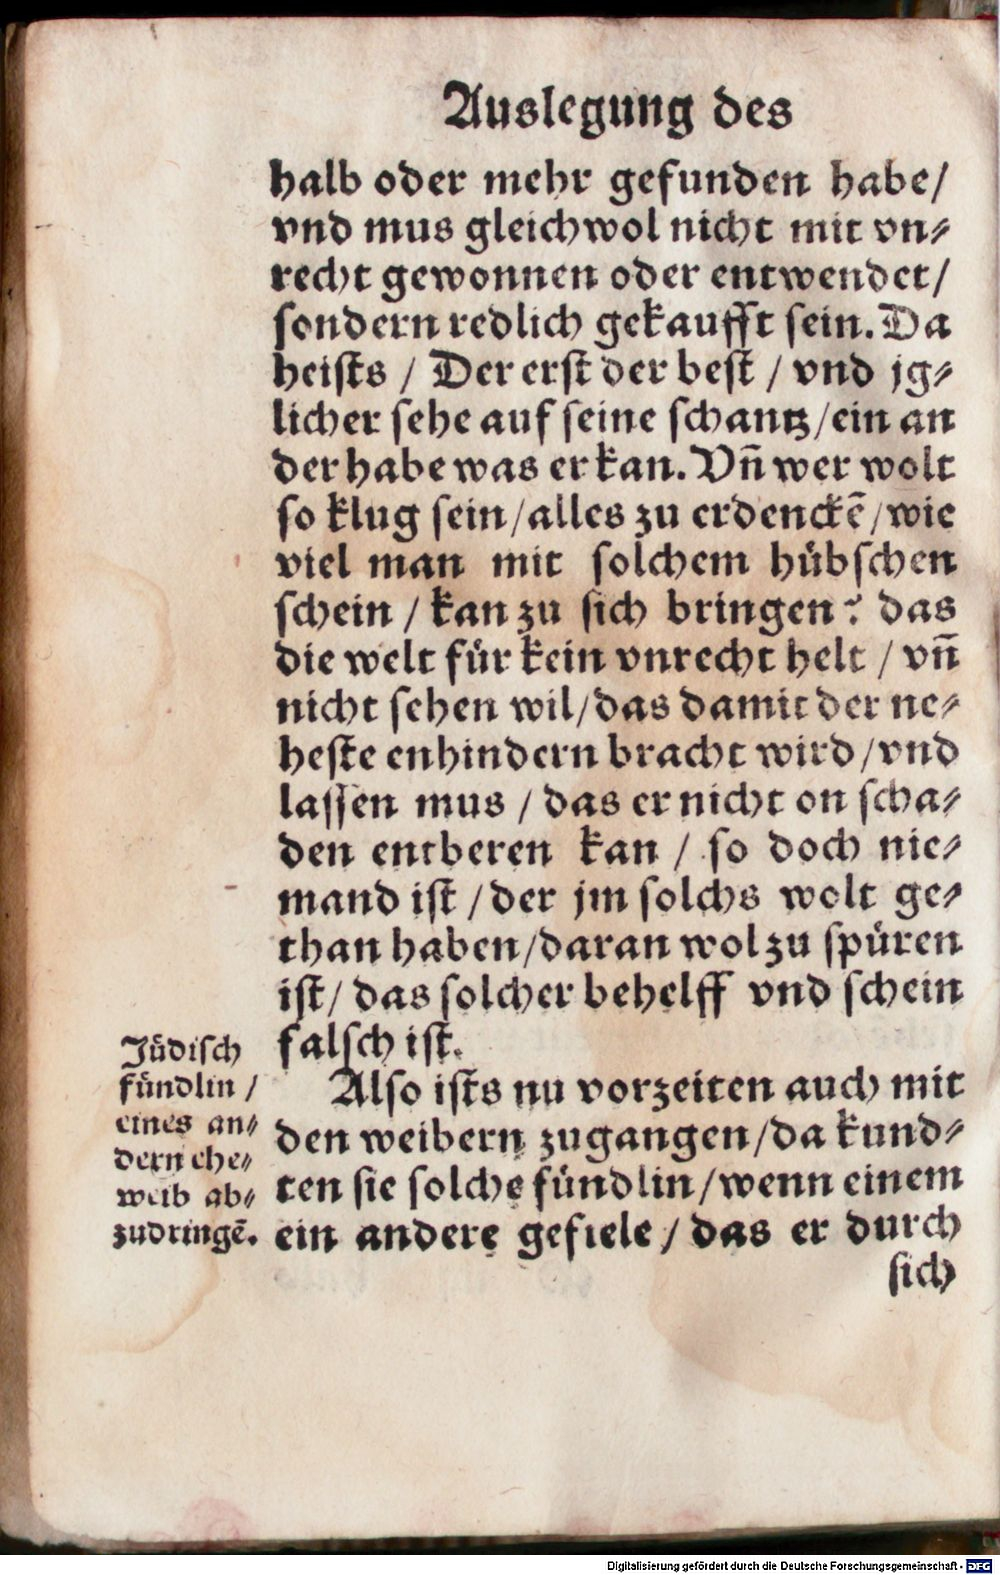 Auslegung des
halb oder mehr gefunden habe/
vnd mus gleichwol nicht mit vn⸗
recht gewonnen oder entwendet/
sondern redlich gekaufft sein. Da
heists / Der erst der best / vnd jg⸗
licher sehe auf seine schantz/ein an
der habe was er kan. Vñ wer wolt
so klug sein/alles zu erdenckē/wie
viel man mit solchem hübschen
schein / kan zu sich bringen? das
die welt für kein vnrecht helt / vñ
nicht sehen wil/das damit der ne⸗
heste enhindern bracht wird/vnd
lassen mus / das er nicht on scha⸗
den entberen kan / so doch nie⸗
mand ist / der jm solchs wolt ge⸗
than haben/daran wol zu spüren
ist/ das solcher behelff vnd schein
falsch ist.
Also ists nu vorzeiten auch mit
den weibern zugangen/da kund⸗
ten sie solche fündlin/wenn einem
ein andere gefiele / das er durch
sich
Jüdisch
fündlin /
eines an⸗
dern ehe⸗
weib ab⸗
zudringē.
Digitalisierung gefördert durch die Deutsche Forschungsgemeinschaft - DFG